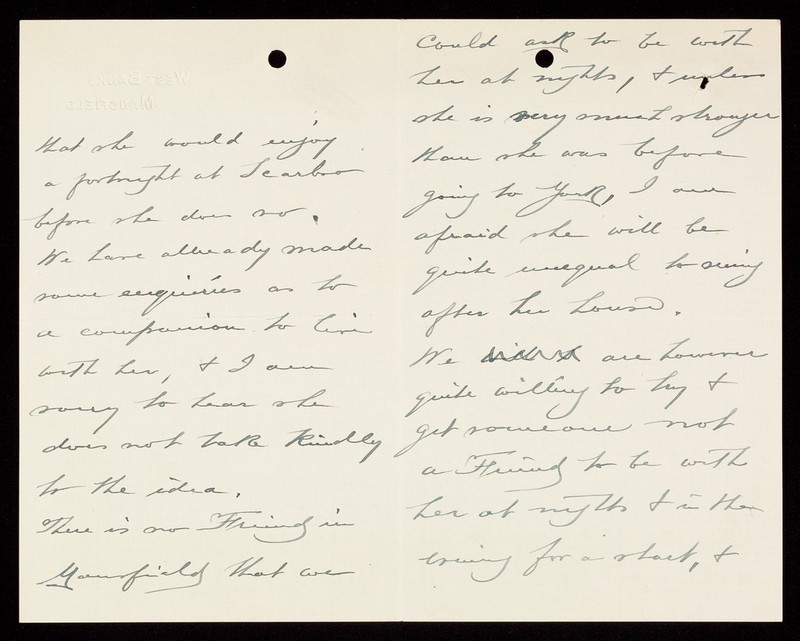 WEST BANK,
MANSFIELD.
that she would enjoy
a fortnight at Scarboro
before she does so.
We have allready made
some enquiries as to
a companion to live
with her, & I am
sorry to hear she
does not take kindly
to the idea.
There is no Friend in
Mansfield that we
could ask to be with
her at nights, & unless
she is very much stronger
than she was before
going to York, I am
afraid she will be
quite unequal to seeing
after her house.
We are however
quite willing to try &
get someone not
a Friend to be with
her at nights & in the
evening for a start, &